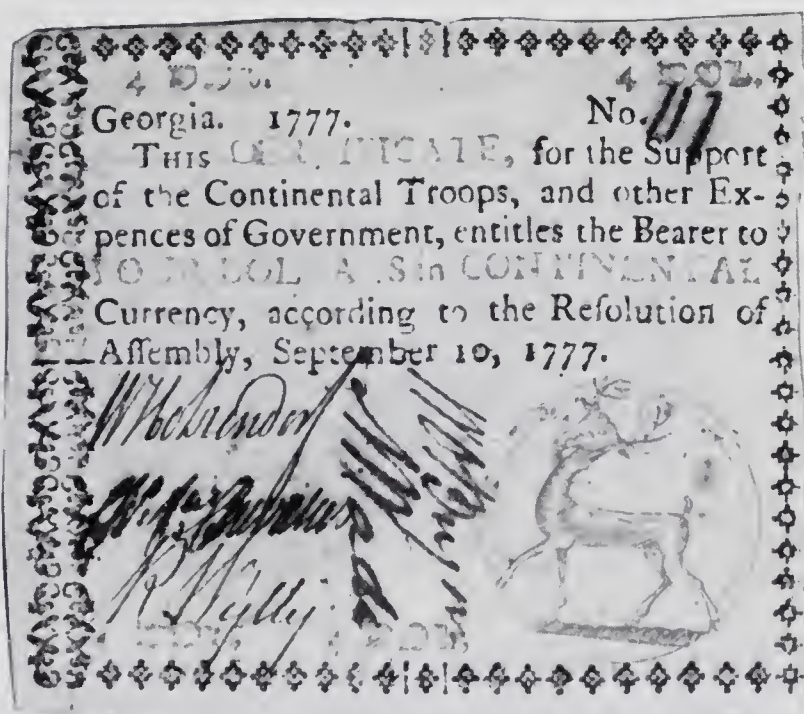 4 DOL.
Georgia. 1777. No. 117
THIS CERTIFICATE, for the Support
of the Continental Troops, and other Ex-
pences of Government, entitles the Bearer to
FOUR DOLLARS in CONTINENTAL
Currency, according to the Reſolution of
Aſſembly, September 10, 1777.
Wylly
DOL.